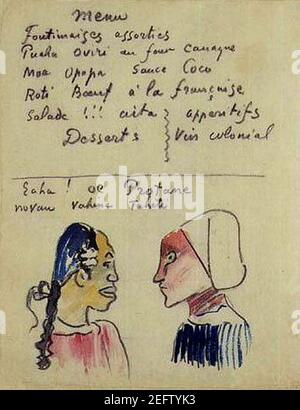 Menu
Foutimaises assorties
Puaha Oviri au four canaque
Moa Opapa Sauce Coco
Roti Bœuf à la française
Salade !!! aita apperitifs
Desserts Vin colonial
Eaha ! oe Protane
novau Vahine Tahiti
2EFTYK3